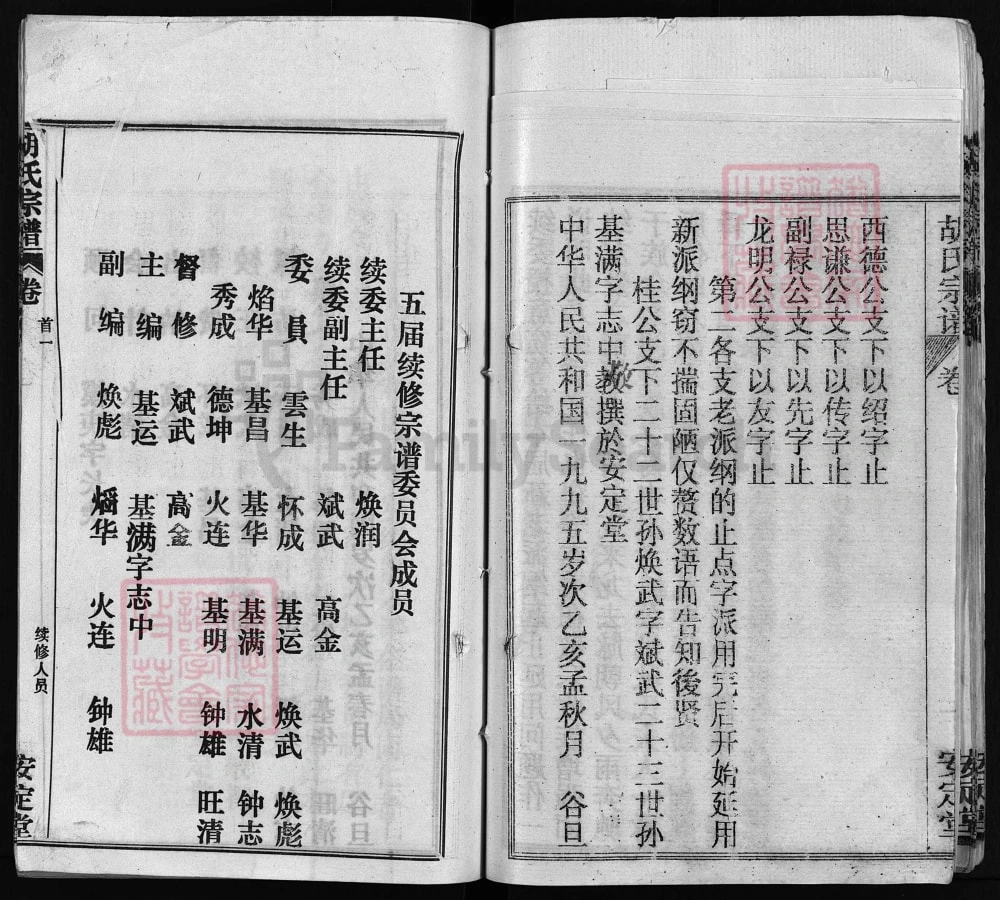 胡氏宗谱
卷
安定堂
西德公支下以绍字止
思谦公支下以传字止
副禄公支下以先字止
龙明公支下以友字止
第二各支老派纲的止点字派用完后开始延用
新派纲窃不揣固陋仅赘数语而告知後贤
桂公支下二十二世孙焕武字斌武二十三世孙
基满字志中敬撰於安定堂
中华人民共和国一九九五岁次乙亥孟秋月 谷旦
五届续修宗谱委员会成员
续委主任 焕润
续委副主任 斌武 高金
委员 雲生 怀成 基运 焕武 焕彪
焰华 基昌 基华 基满 水清 钟志
秀成 德坤 火连 基明 钟雄 旺清
督修 斌武 高金
主编 基运 基满字志中
副编 焕彪 焰华 火连 钟雄
胡氏宗谱
卷
首一
续修人员
安定堂
FamilySearch